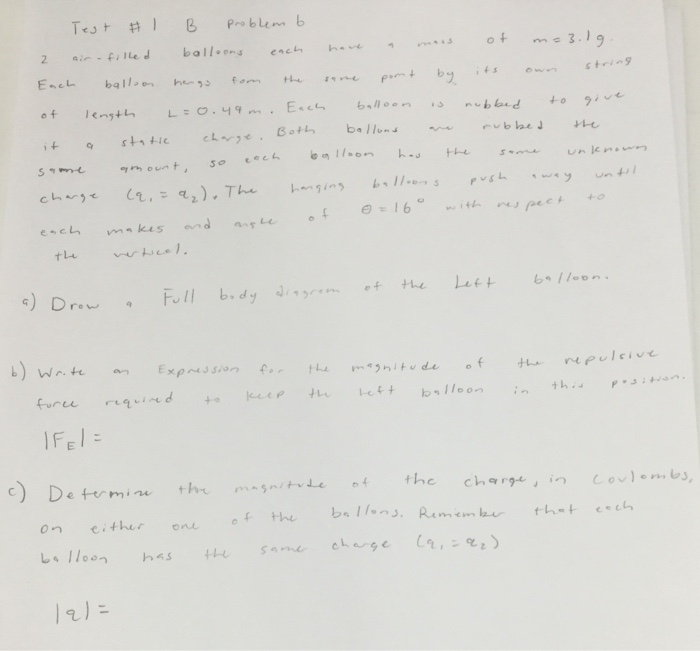 Test #1 B Problem 6
2 air-filled balloons each have a mass of m=3.1g.
Each balloon hengs from the same point by its own string
of length L=0.49m. Each balloon is rubbed to give
it a static charge. Both ballons are rubbed the
same amount, so each balloon has the same unknown
charge (q₁=q₂). The hanging balloons push away until
each makes and angle of θ=16° with respect to
the vertical.
a) Draw a Full body diagram of the Left balloon.
b) Write an Expression for the magnitude of the repulsive
force required to keep the left balloon in this position.
|F_E|=
c) Determine the magnitude of the charge, in Coulombs,
on either one of the ballons. Remember that each
balloon has the same charge (q₁=q₂)
|q|=